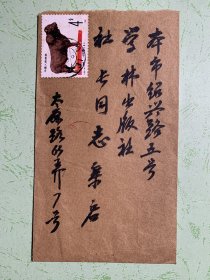 本市绍兴路五号
学林出版社
社长同志 亲启
太原路45弄7号